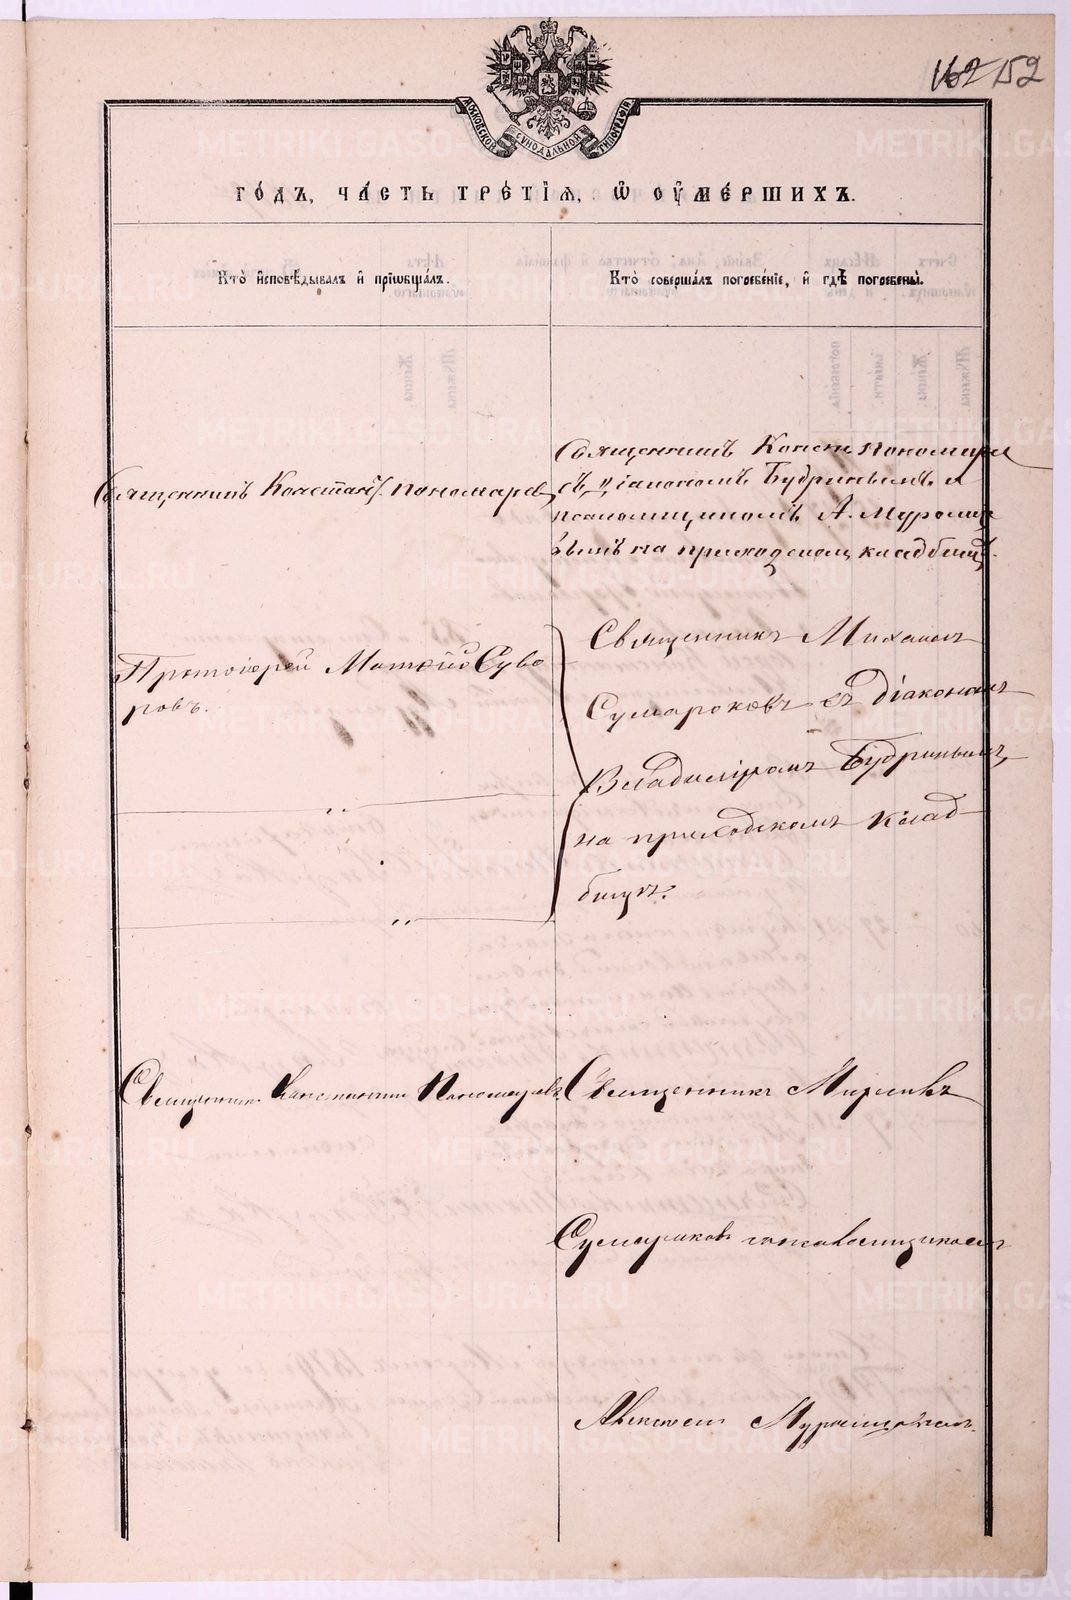 162 152
МОСКОВСКОЙ СѴНОДАЛЬНОЙ ТИПОГРАФІИ
ГО́ДЪ, ЧА́СТЬ ТРЕ́ТІѦ, Ѡ҆ ОУ҆МЕ́РШИХЪ.
Кто̀ и҆сповѣ́дывалъ и҆ прїѡбща́лъ.
Кто̀ соверша́лъ погребе́нїе, и҆ гдѣ̀ погребены̀.
Священникъ Констант. Пономарев
Священникъ Констн Пономарев
съ діакономъ Будринымъ и
псаломщикомъ А. Муромце
вымъ на приходскомъ кладбищѣ.
Протоіерей Матѳей Суво
ровъ.
„
„
Священникъ Михаилъ
Сумароковъ съ діакономъ
Владиміромъ Будринымъ,
на приходскомъ клад-
бищѣ.
Священникъ Константинъ Пономаревъ
Священникъ Михаилъ
Сумароковъ псаломщикомъ
Алексѣем Муромцевымъ.
METRIKI.GASO-URAL.RU